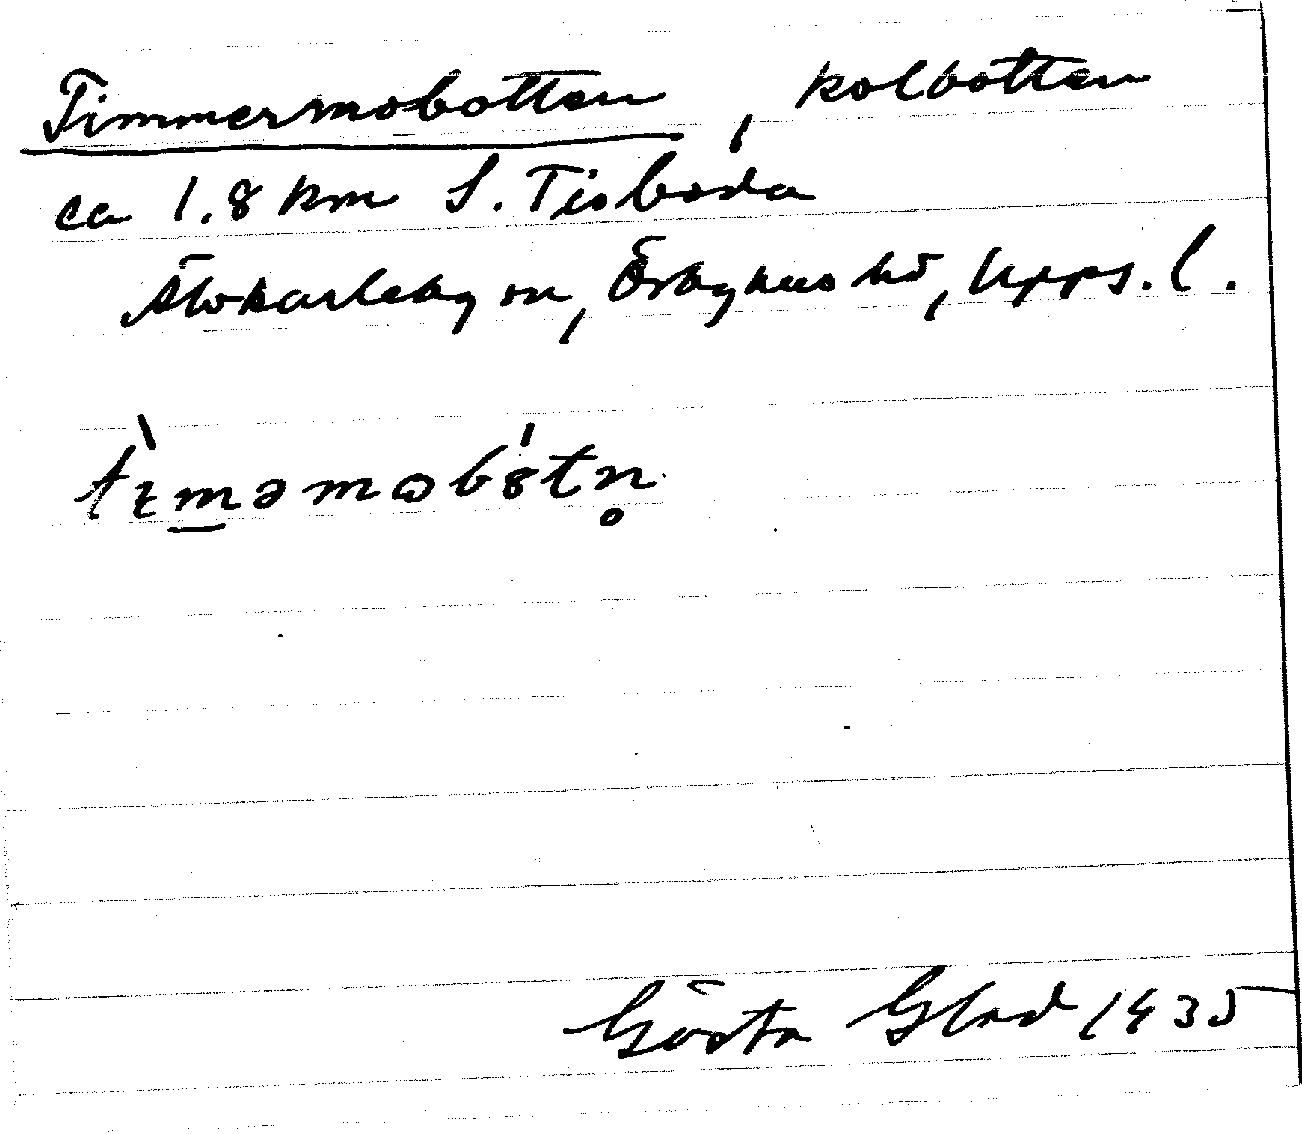 Timmermobotten, kolbotten
ca 1.8 km S. Tisboda
Älvkarleby sn, Örbyhus hd, Upps. l.
tìməmωbòtn̥
Gösta Glad 1935